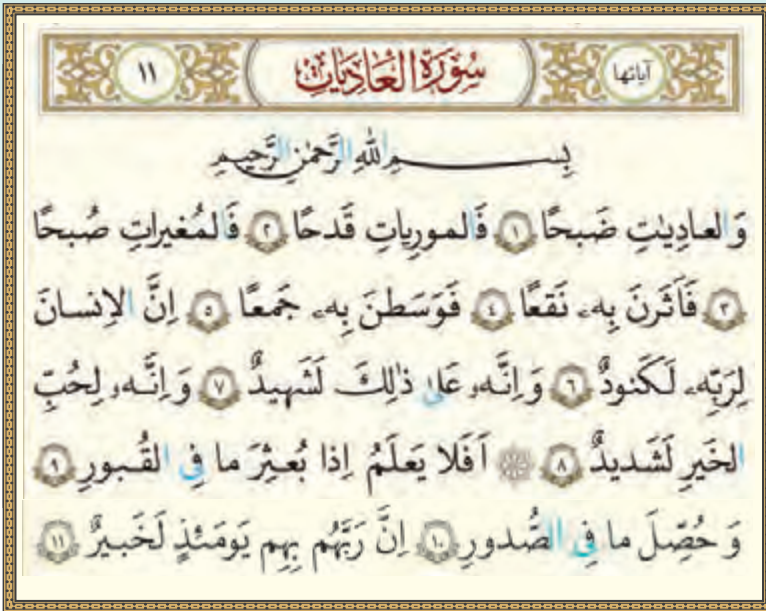 آیاتها سُورَةُ العَادیَاتِ ۱۱
بِسمِ اللّٰهِ الرَّحمٰنِ الرَّحیمِ
وَالعادِیٰتِ ضَبحًا ۱ فَالموریاتِ قَدحًا ۲ فَالمُغیراتِ صُبحًا
۳ فَاَثَرنَ بِه۪ نَقعًا ۴ فَوَسَطنَ بِه۪ جَمعًا ۵ اِنَّ الاِنسانَ
لِرَبِّه۪ لَکَنودٌ ۶ وَ اِنَّهۥ عَلیٰ ذٰلِکَ لَشَهیدٌ ۷ وَ اِنَّهۥ لِحُبِّ
الخَیرِ لَشَدیدٌ ۸ ۞ اَفَلا یَعلَمُ اِذا بُعثِرَ ما فِی القُبورِ ۹
وَ حُصِّلَ ما فِی الصُّدورِ ۱۰ اِنَّ رَبَّهُم بِهِم یَومَئِذٍ لَخَبیرٌ ۱۱